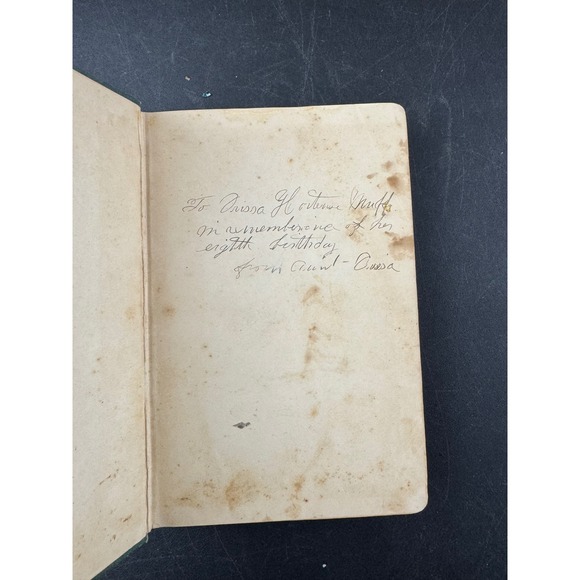 To Orissa Hortense
in rememberince of her
eighth birthday
from Aunt - Orissa